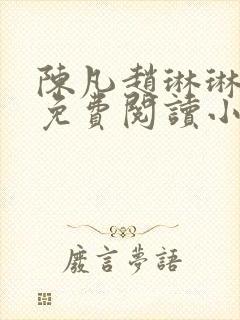 陳凡趙琳琳
免費閱讀小
廢言夢語